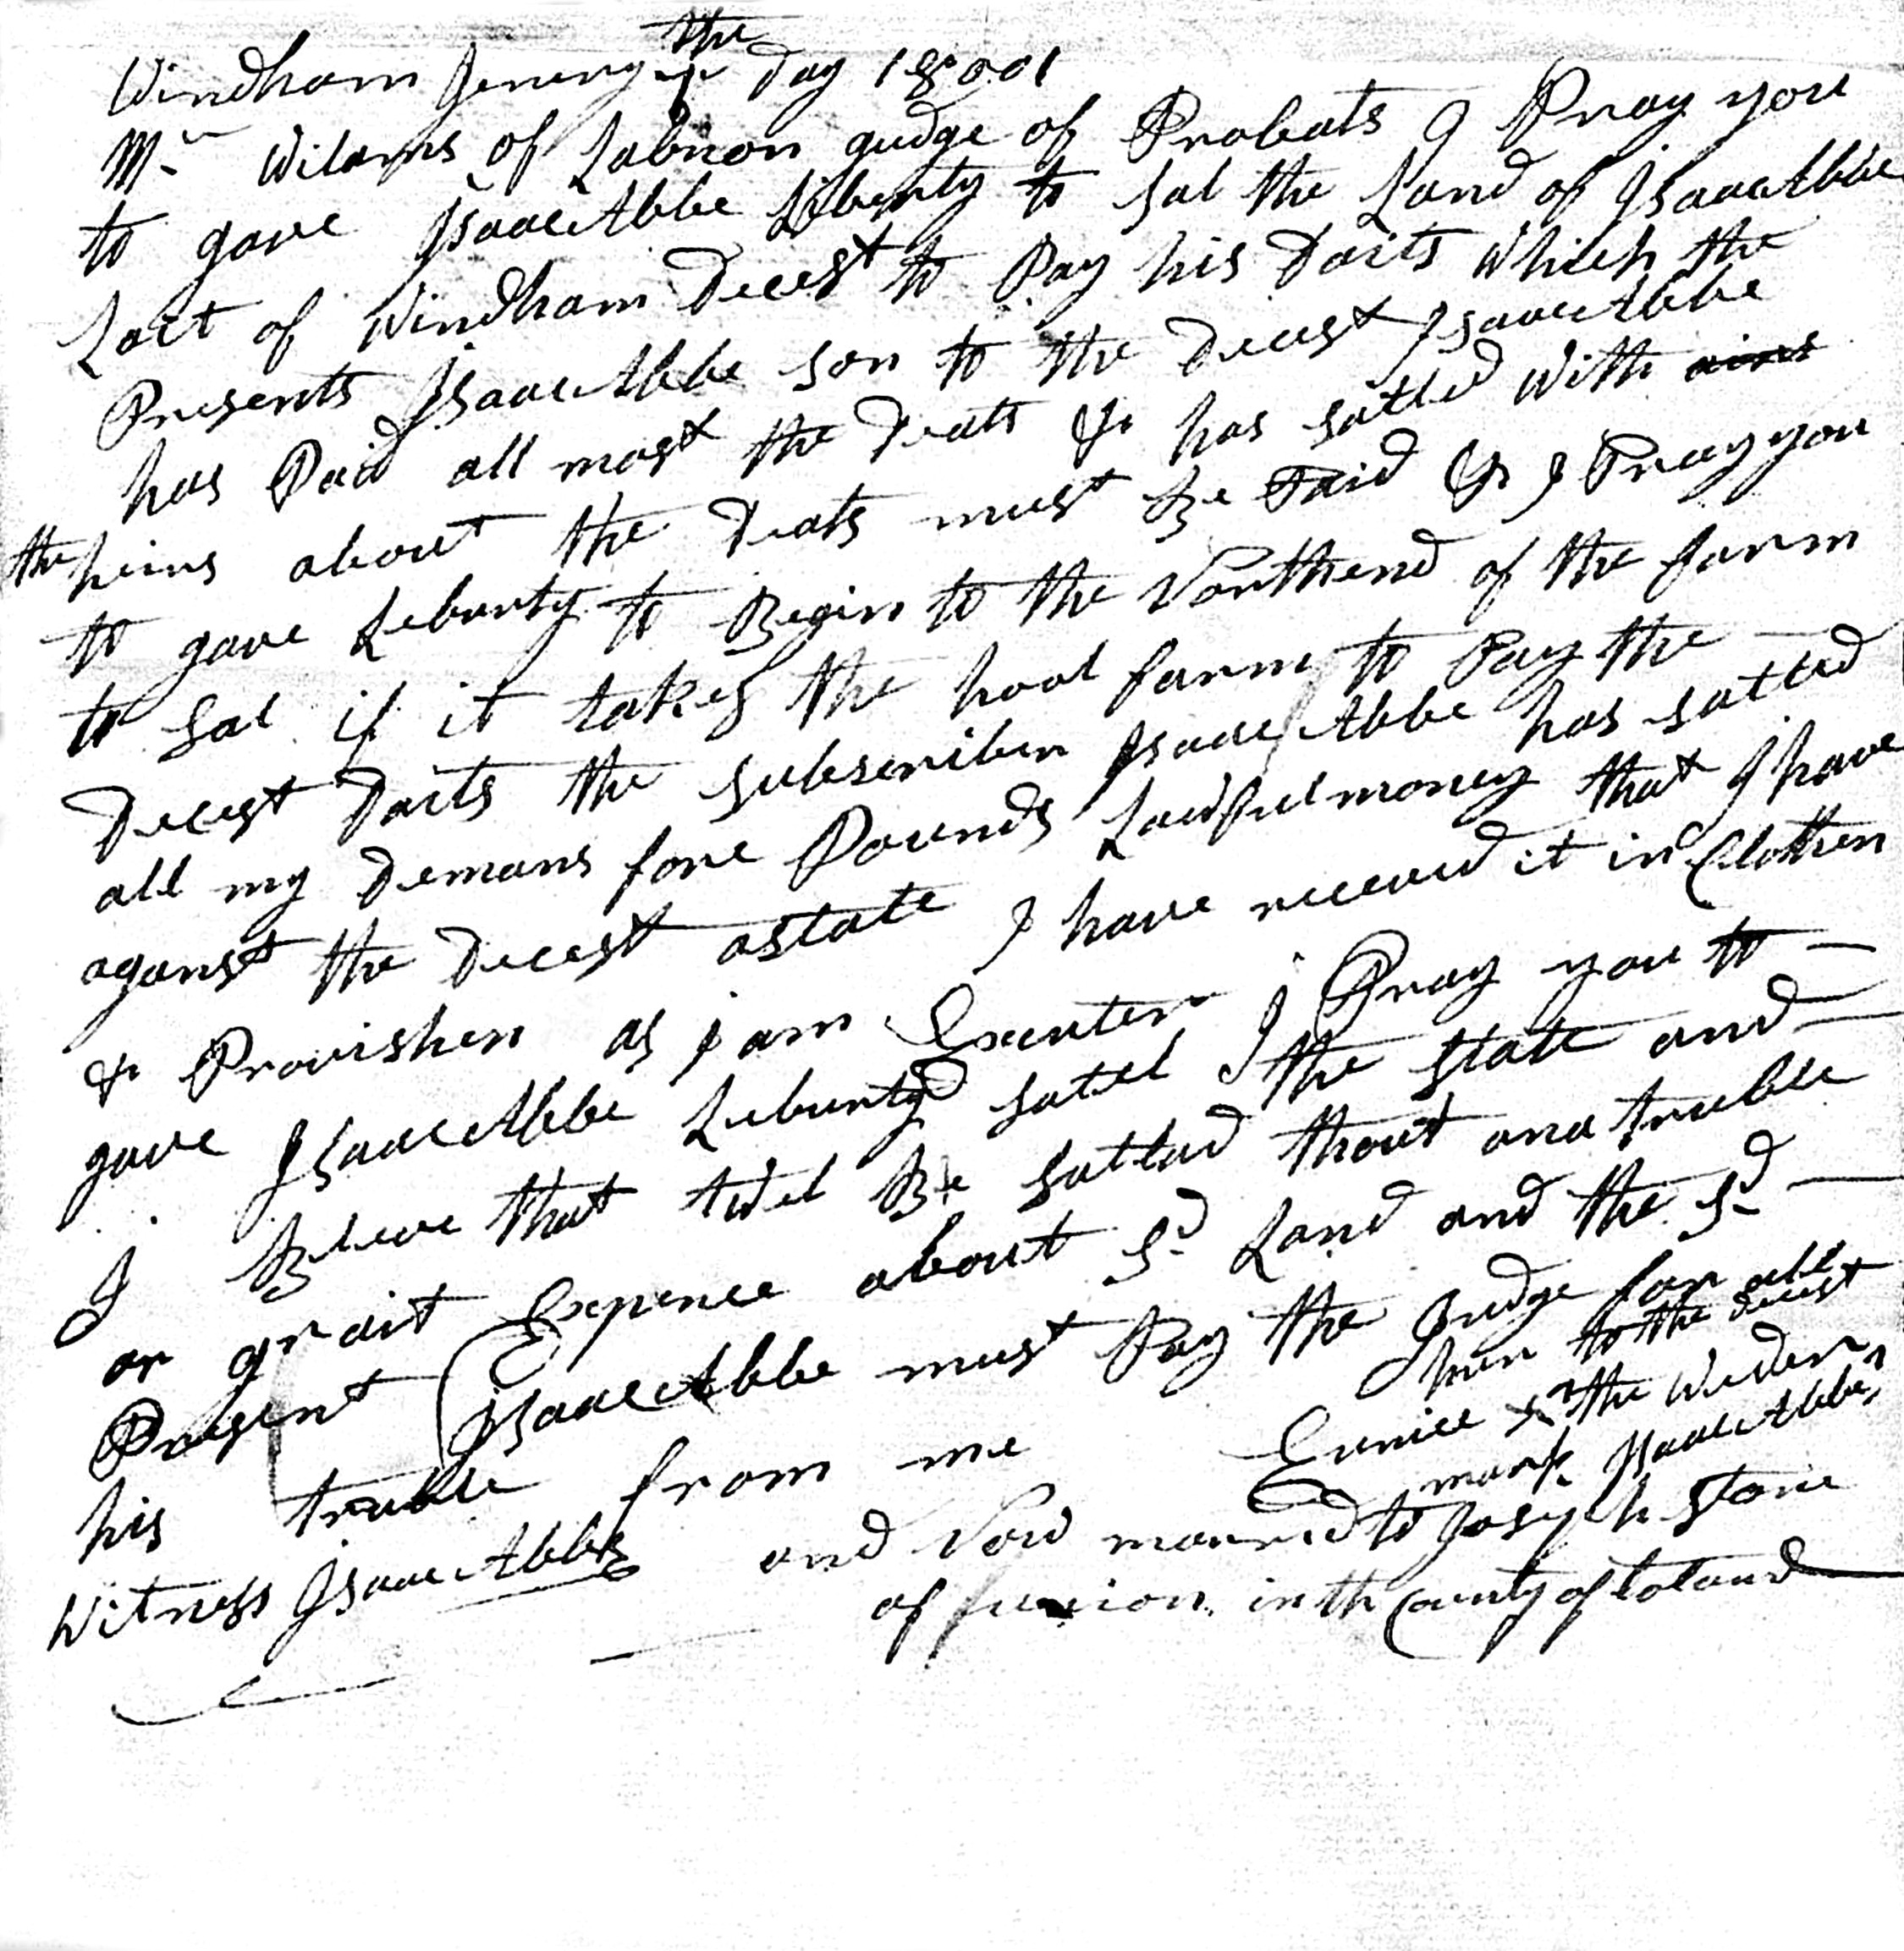 Windham Jenery the 1 Day 18001
Mr Wilams of Labnon gudge of Probats I Pray you
to gave Isaac Abbe Liberty to sal the Land of Isaac Abbe
Lait of Windham Decest to Pay his Daits which the
Presents Isaac Abbe son to the Decest Isaac Abbe
has Paid all most the Deats & has satled with
the heirs about the Deats must Be Paid & I Pray you
to gave Leburty to Begin to the Northend of the farm
to sal if it takes the hool farm to Pay the
Decest Daits the subscriber Isaac Abbe has satled
all my Demans fore Pounds Lawful money that I have
aganst the Decest astate I have receved it in Clothen
& Provishen as I am Executer I Pray you to
gave Isaac Abbe Leburty satel the state and
I Beleve that twel Be satled thout ana truble
or grait Expence about sd Land and the sd
Present Isaac Abbe must Pay the Judge for all
his truble from me
her to the Decest
Eunice X the Wider
mark Isaac Abbe
Witness Isaac Abbe and Now married to Joseph Stone
of in th County of toland